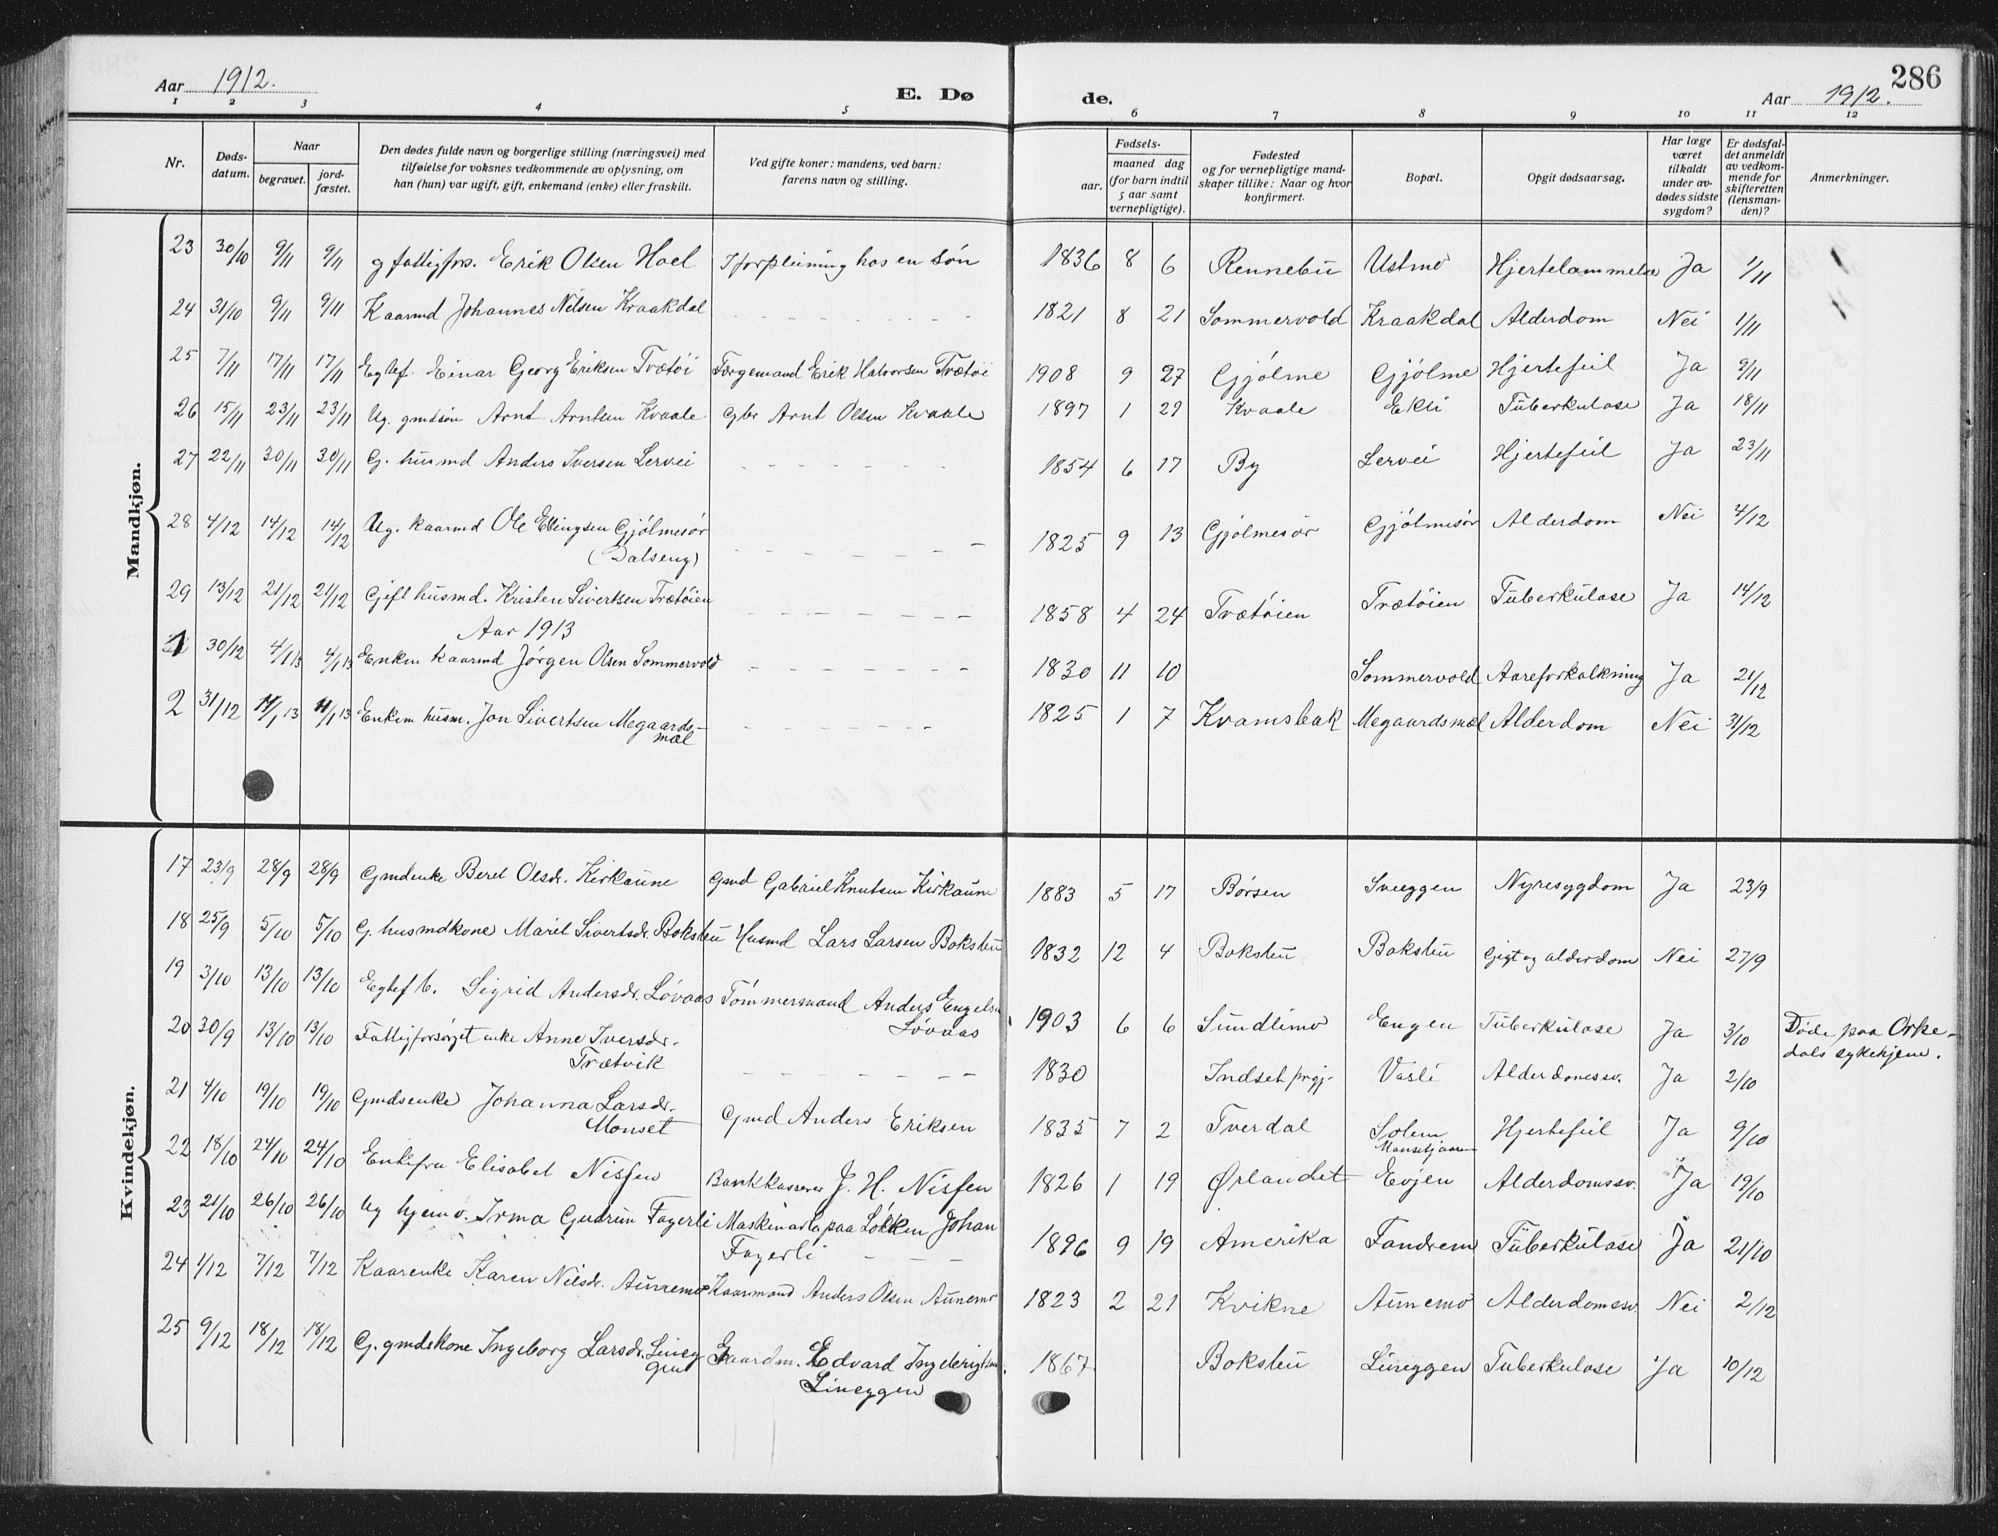 286
Aar 1912. E. Dø de. Aar 1912.
1 2 3 4 5 6 7 8 9 10 11 12
Nr. Døds-datum. Naar begravet. jord-fæstet. Den dødes fulde navn og borgerlige stilling (næringsvei) med tilføielse for voksnes vedkommende av oplysning, om han (hun) var ugift, gift, enkemand (enke) eller fraskilt. Ved gifte koner: mandens, ved barn: farens navn og stilling. Fødsels- aar. maaned dag (for barn indtil 5 aar samt vernepligtige). Fødested og for vernepligtige mand-skaper tillike: Naar og hvor konfirmert. Bopæl. Opgit dødsaarsag. Har læge været tilkaldt under av-dødes sidste sygdom? Er dødsfal-det anmeldt av vedkom-mende for skifteretten (lensman-den)? Anmerkninger.
Mandkjøn.
23 30/10 9/11 9/11 g fattigfors. Erik Olsen Hoel I forpleining hos en søn 1836 8 6 Rennebu Ustmo Hjertelammelse Ja 1/11
24 31/10 9/11 9/11 Kaarmd Johannes Nilsen Kraakdal 1821 8 21 Sommervold Kraakdal Alderdom Nei 1/11
25 7/11 17/11 17/11 Egtef. Einar Georg Eriksen Trætøi Færgemand Erik Halvorsen Trætøi 1908 9 27 Gjølme Gjølme Hjertefeil Ja 9/11
26 15/11 23/11 23/11 Ug. gmdsøn Arnt Arntsen Kvaale Gbr Arnt Olsen Kvaale 1897 1 29 Kvaale Ekli Tuberkulose Ja 18/11
27 22/11 30/11 30/11 G. husmd Anders Iversen Lervei 1854 6 17 By Lervei Hjertefeil Ja 23/11
28 4/12 14/12 14/12 Ug. kaarmd Ole Ellingsen Gjølmesør 1825 9 13 Gjølmesør Gjølmesør Alderdom Nei 4/12
(Dalseng)
29 13/12 21/12 21/12 Gift husmd. Kristen Sivertsen Trætøien 1858 4 24 Trætøien Trætøien Tuberkulose Ja 14/12
Aar 1913
1 30/12 4/1 13 4/1 13 Enkem kaarmd Jørgen Olsen Sommervold 1830 11 10 Sommervold Aareforkalkning Ja 21/12
2 31/12 11/1 13 11/1 13 Enkem husm. Jon Sivertsen Megaards- 1825 1 7 Kvamsbak Megaardsmæl Alderdom Nei 31/12
mæl
Kvindekjøn.
17 23/9 28/9 28/9 Gmdenke Beret Olsdr. Kirkaune Gmd Gabriel Knutsen Kirkaune 1883 5 17 Børsen Sveeggen Nyresygdom Ja 23/9
18 25/9 5/10 5/10 G. husmdkone Marit Sivertsdr. Bokstu Husmd Lars Larsen Bokstu 1832 12 4 Bokstu Bokstu Gigt og alderdom Nei 27/9
19 3/10 13/10 13/10 Egtef b. Sigrid Andersdr. Løvaas Tømmermand Anders Engelsn 1903 6 6 Sundlimo Engen Tuberkulose Ja 3/10 Døde paa Orke-
Løvaas dals sykehjem.
20 30/9 13/10 13/10 Fattigforsørget enke Anne Iversdr. 1830 Indset prgj. Vasli Alderdomssv. Ja 2/10
Trætvik
21 4/10 19/10 19/10 Gmdsenke Johanna Larsdr. Gmd Anders Eriksen 1835 7 2 Tverdal Solem Hjertefeil Ja 9/10
Monset
22 18/10 24/10 24/10 Enkefru Elisabet Nissen Bankkasserer J. H. Nissen 1826 1 19 Ørlandet Evjen Alderdomssv. Ja 19/10
23 21/10 26/10 26/10 Ug hjemv. Irma Gudrun Fagerli Maskinarb paa Løkken Johan 1896 9 19 Amerika Fandrem Tuberkulose Ja 21/10
Fagerli
24 1/12 7/12 7/12 Kaarenke Karen Nilsdr. Aunemo Kaarmand Anders Olsen Aunemo 1823 2 21 Kvikne Aunemo Alderdomssv. Nei 2/12
25 9/12 18/12 18/12 G. gmdskone Ingeborg Larsdr. Lineg Gaardm. Edvard Ingebrigtsen 1867 Bokstu Lineggen Tuberkulose Ja 10/12
gen Lineggen